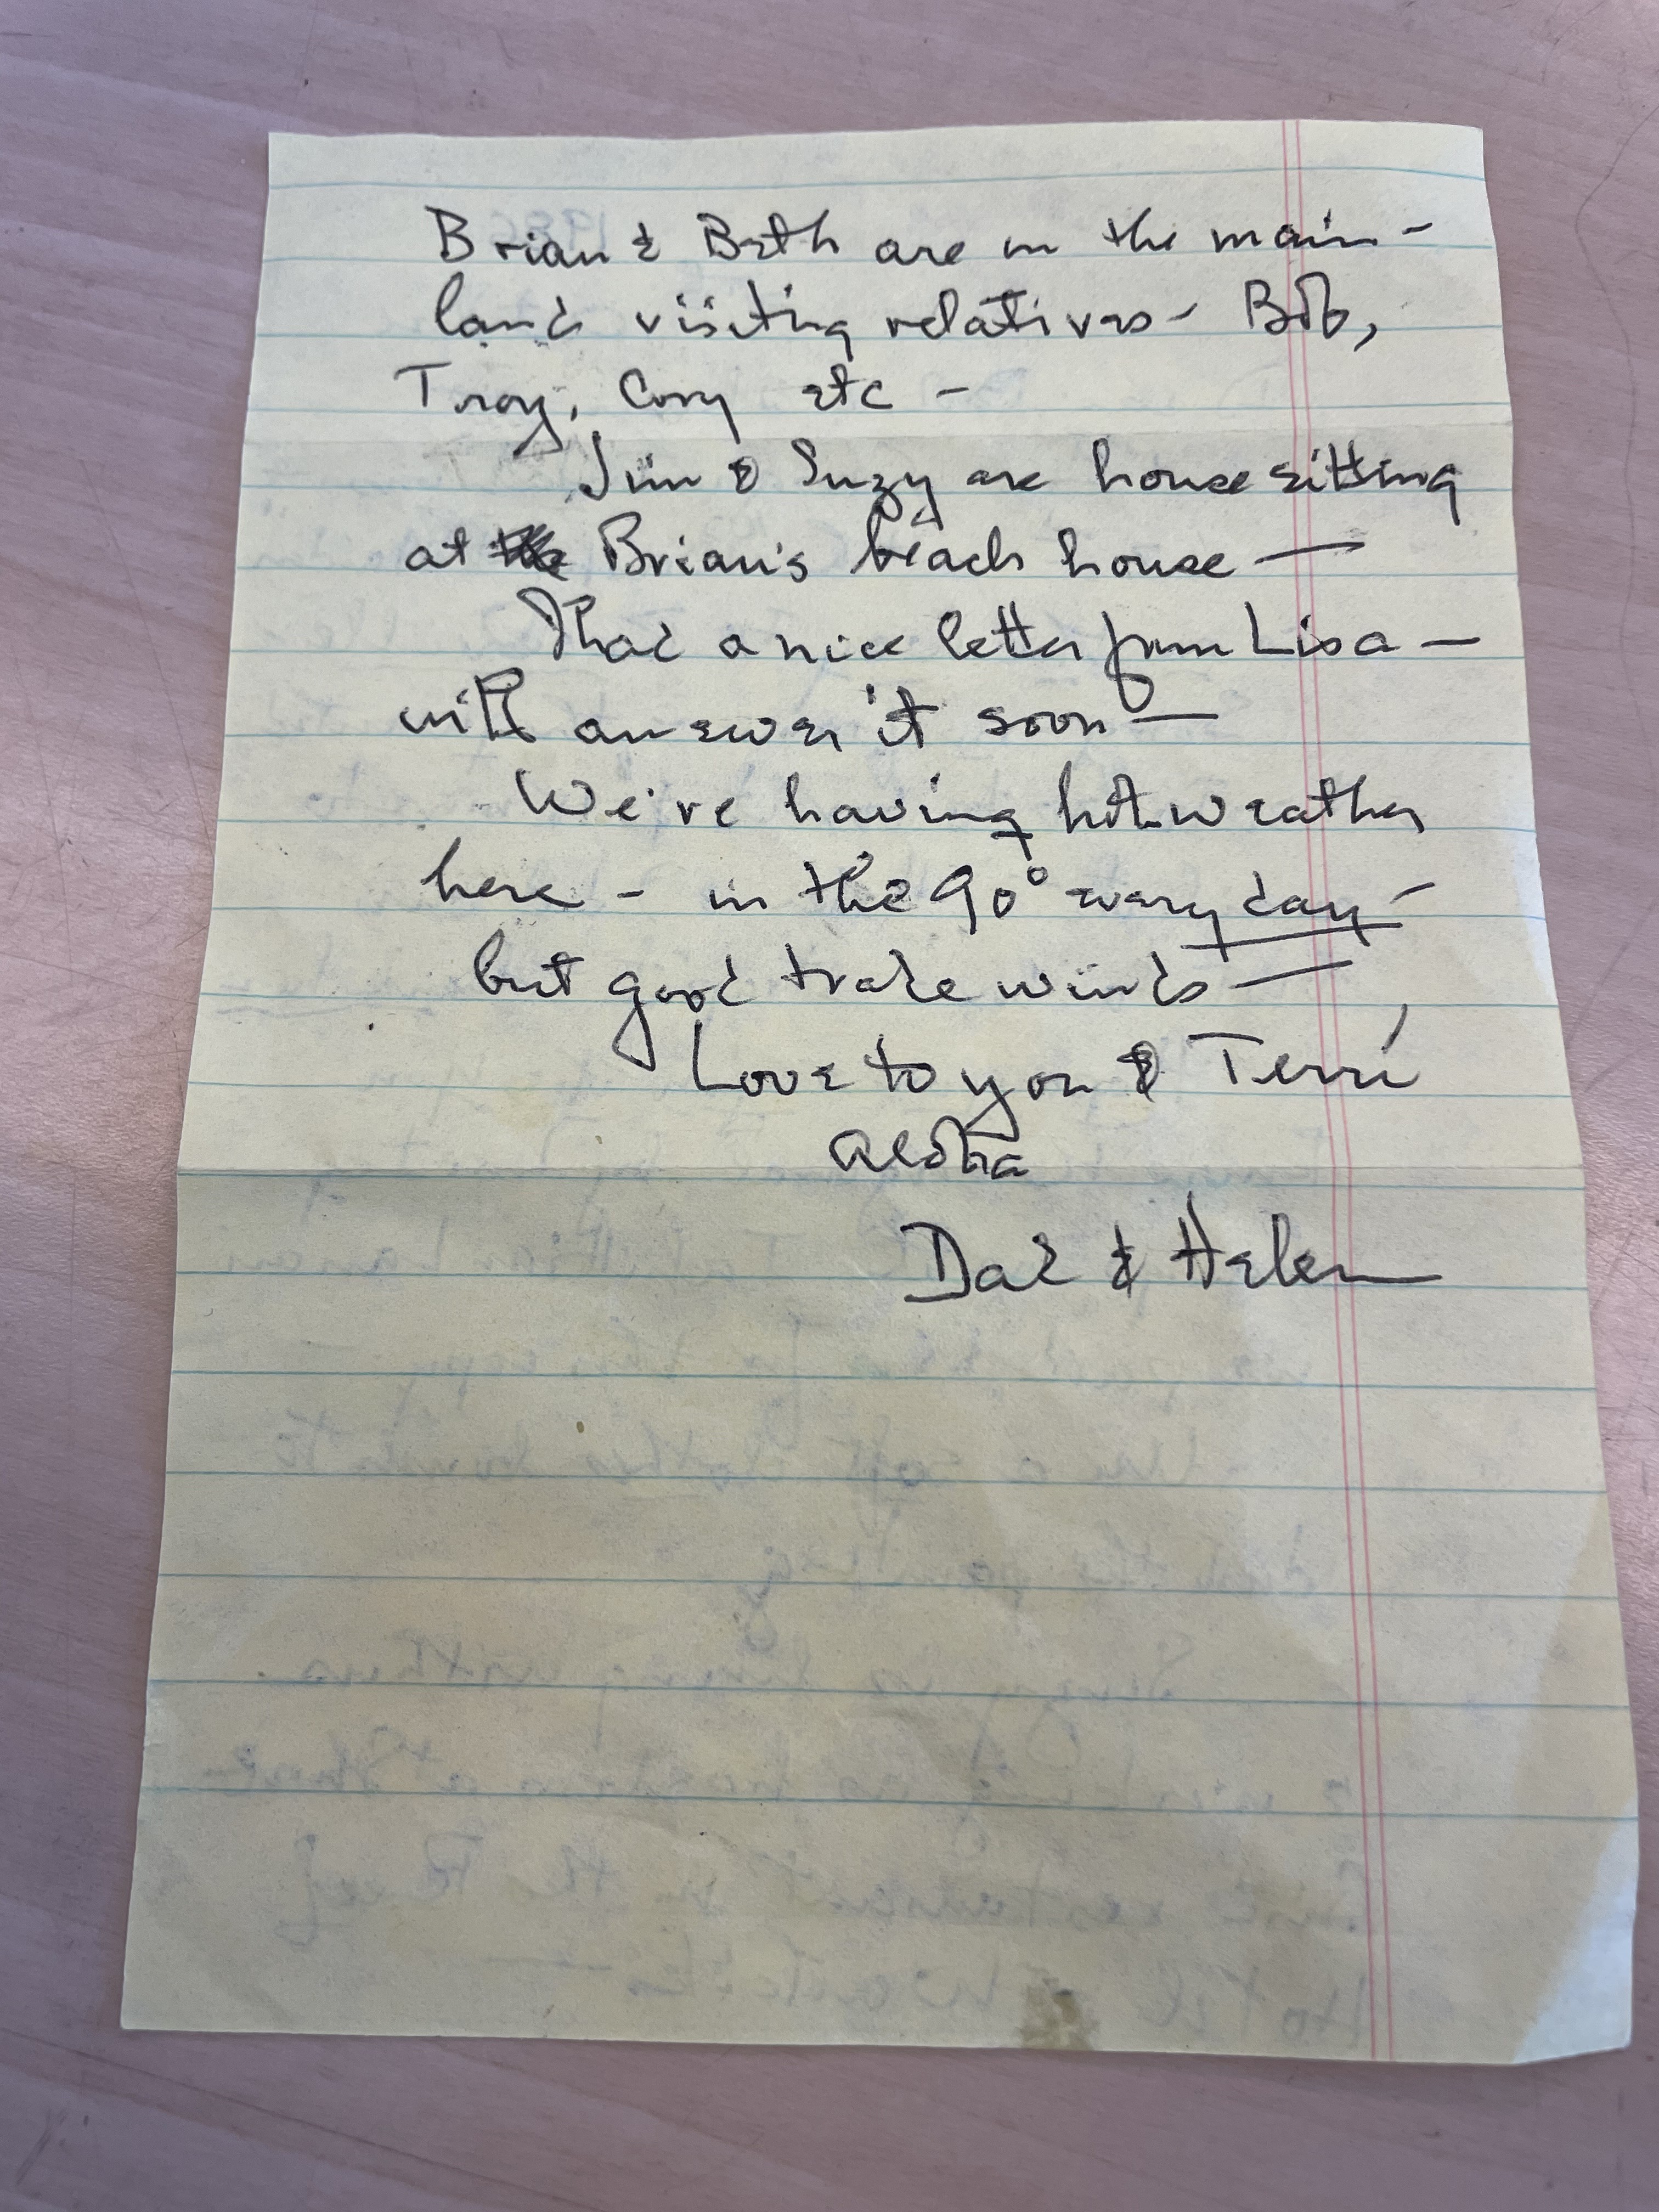 Brian & Beth are in the main-
land visiting relatives - Bob,
Troy, Cory etc -
Jim & Suzy are house sitting
at Brian's beach house —
I had a nice letter from Lisa —
will answer it soon —
We're having hot weather
here - in the 90° every day -
but good trade winds —
Love to you & Terri
Aloha
Dad & Helen